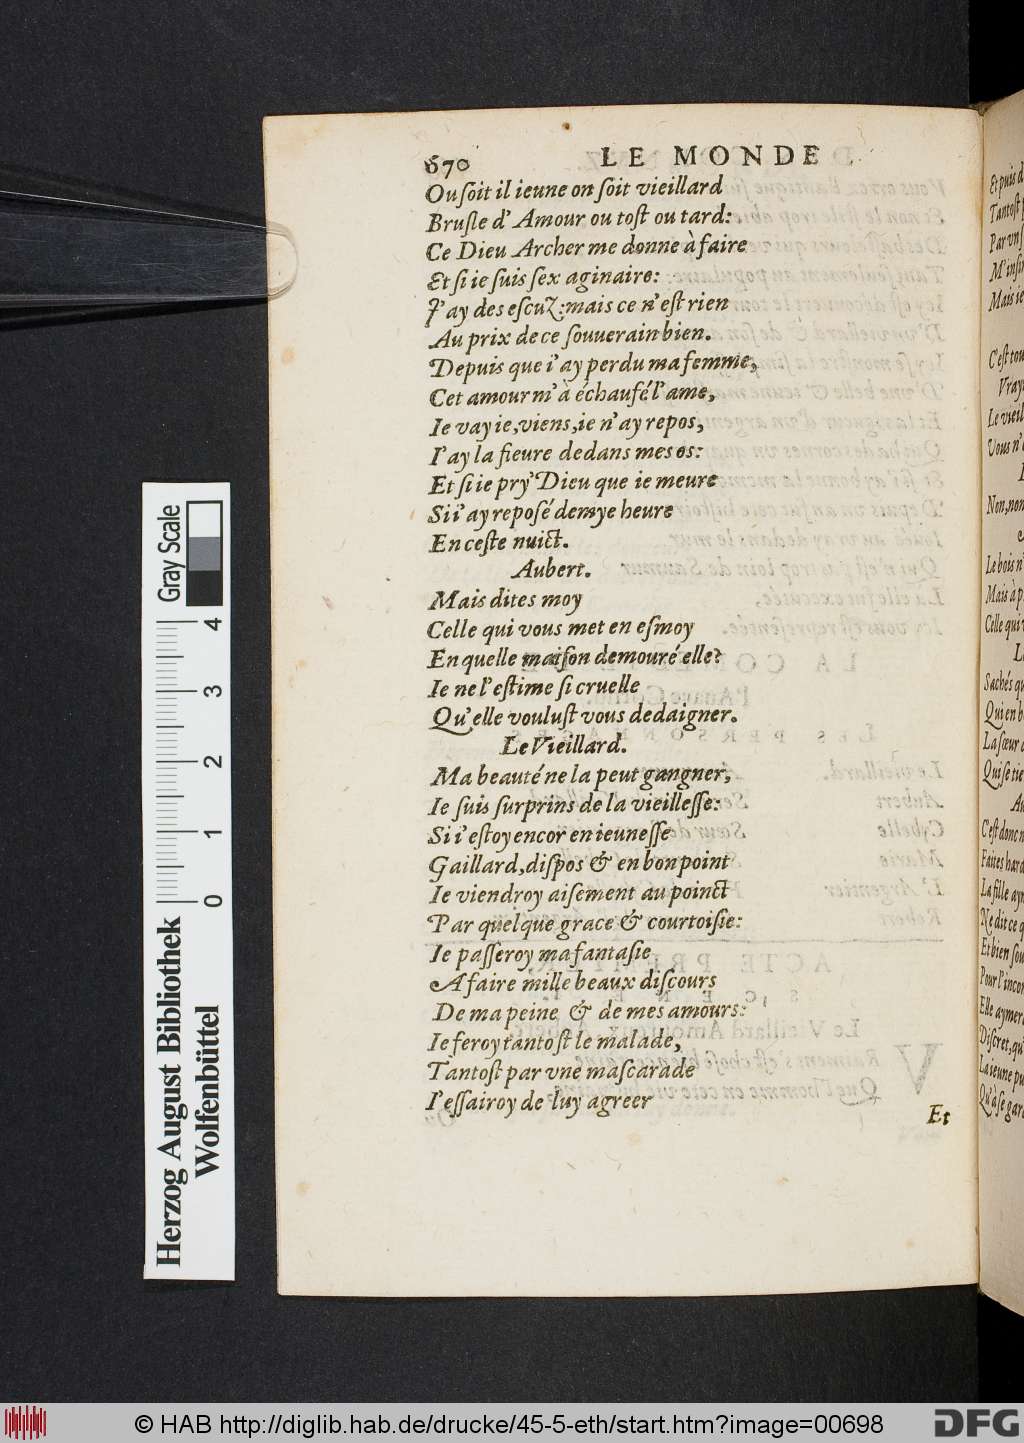 670 LE MONDE
Ou ſoit il ieune on ſoit vieillard
Bruſle d' Amour ou toſt ou tard:
Ce Dieu Archer me donne à faire
Et ſi ie ſuis ſex aginaire:
J'ay des eſcuz: mais ce n'eſt rien
Au prix de ce ſouuerain bien.
Depuis que i'ay perdu ma femme,
Cet amour m'à échaufé l'ame,
Ie vay ie, viens, ie n'ay repos,
I'ay la fieure dedans mes os:
Et ſi ie pry' Dieu que ie meure
Si i'ay repoſé demye heure
En ceſte nuict.
Aubert.
Mais dites moy
Celle qui vous met en eſmoy
En quelle maiſon demouré elle?
Ie ne l'eſtime ſi cruelle
Qu'elle vouluſt vous dedaigner.
Le Vieillard.
Ma beauté ne la peut gangner,
Ie ſuis ſurprins de la vieilleſſe:
Si i'eſtoy encor en ieuneſſe
Gaillard, diſpos & en bon point
Ie viendroy aiſement au poinct
Par quelque grace & courtoiſie:
Ie paſſeroy ma fantaſie
A faire mille beaux diſcours
De ma peine & de mes amours:
Ie feroy tantoſt le malade,
Tantoſt par vne maſcarade
I'eſſairoy de luy agreer
Et
Et puis
Tantoſt
Par vn
Mais ie
C'eſt
Le
Vous n'
Non, non
Le bois n'
Mais à
Celle qui
Sachés
Qui en
La ſœur
Qui ſe
C'eſt donc
Faites
La fille
Ne dit ce
Et bien
Pour l'
Elle
Diſcret,
La ieune
Qu'à ſe
Gray Scale
4 3 2 1 0
Herzog August Bibliothek
Wolfenbüttel
© HAB http://diglib.hab.de/drucke/45-5-eth/start.htm?image=00698
DFG